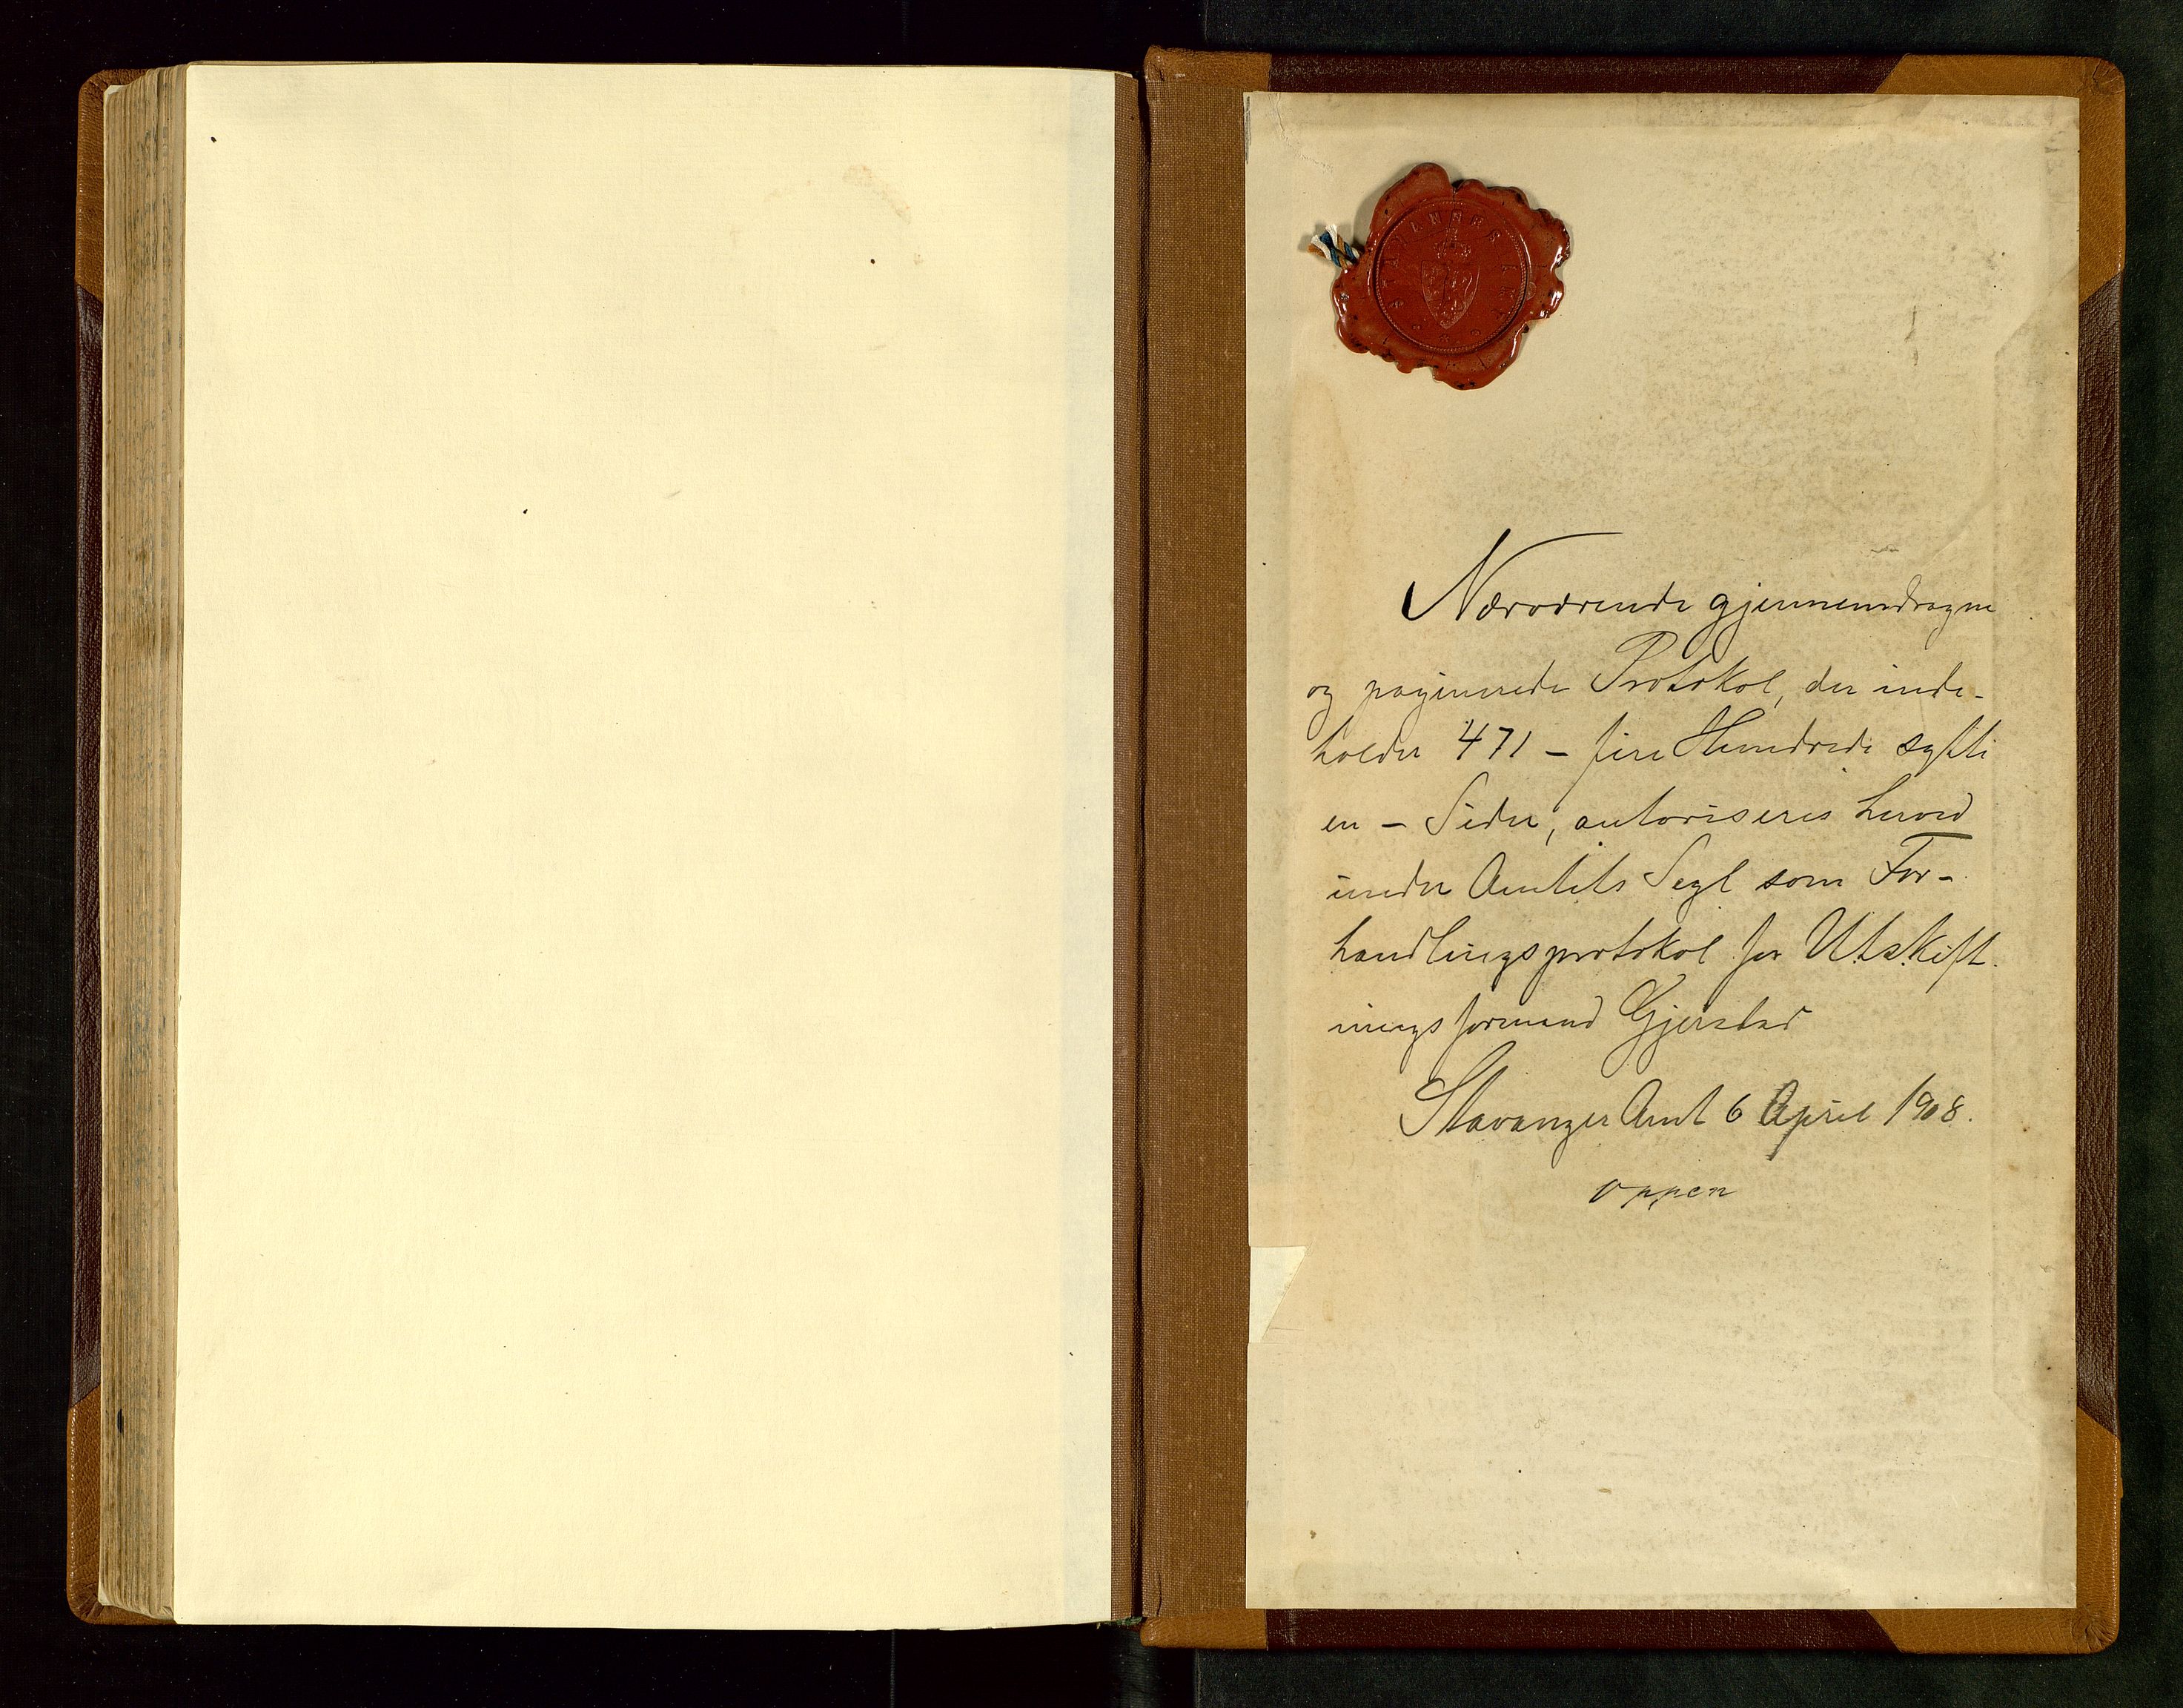 STAVANGER AMT
Nærværende gjennemdragne
og paginerede Protokol, der inde-
holder 471 - fire Hundrede sytti
en - Sider, autoriseres herved
under Amtets Segl som For-
handlingsprotokol for Utskift-
ningsformand Gjerstad
Stavanger Amt 6 April 1908.
Oppen